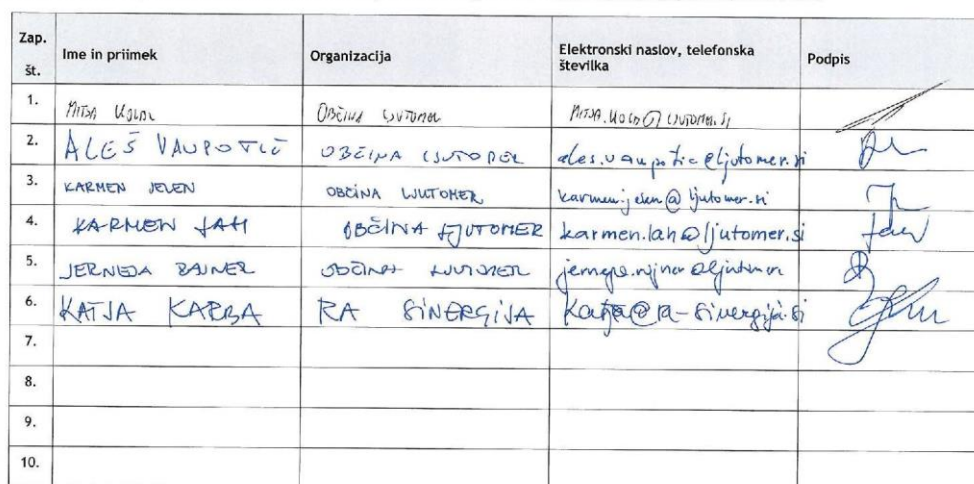 Zap. št. Ime in priimek Organizacija Elektronski naslov, telefonska številka Podpis
1. MITJA KOLBL OBČINA LJUTOMER
2. ALEŠ VAUPOTIČ OBČINA LJUTOMER ales.vaupotic@ljutomer.si
3. KARMEN JELEN OBČINA LJUTOMER karmen.jelen@ljutomer.si
4. KARMEN LAH OBČINA LJUTOMER karmen.lah@ljutomer.si
5. JERNEJA OBČINA LJUTOMER
6. KATJA KARBA RA SINERGIJA katja@ra-sinergija.si
7.
8.
9.
10.